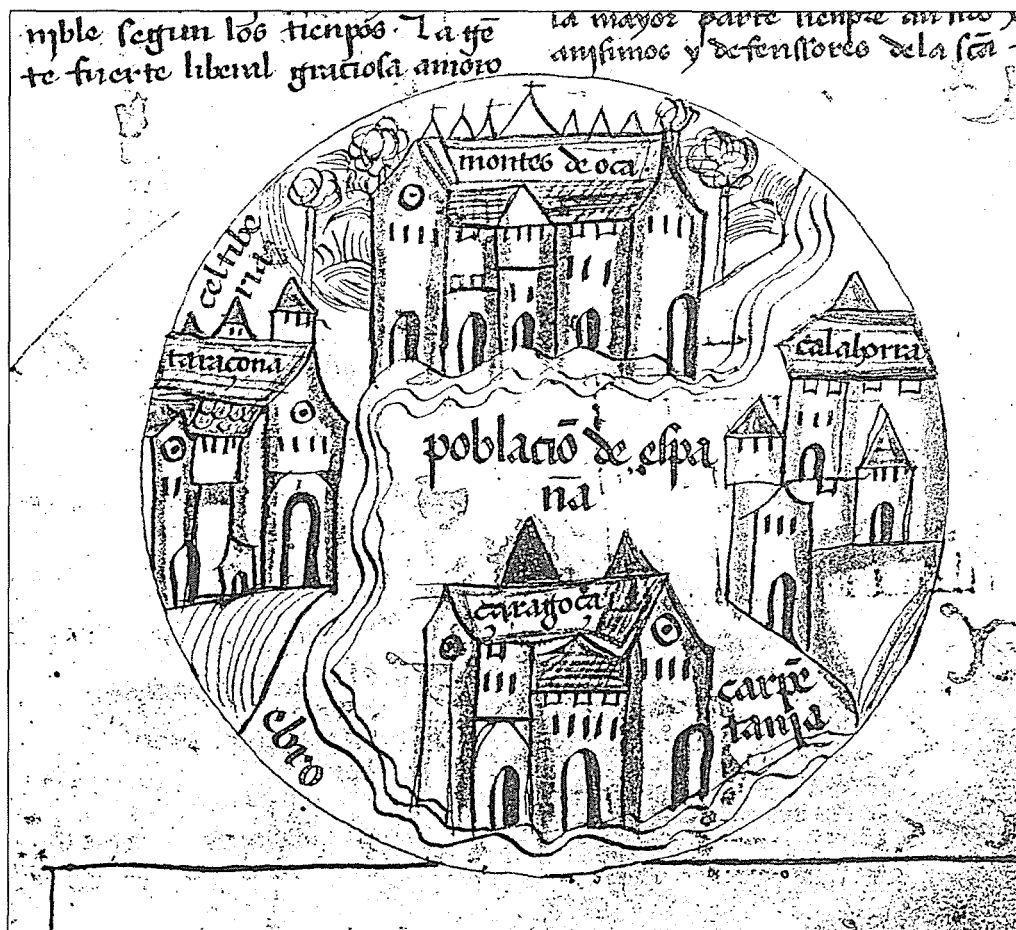 nible segun los tienpos. La gē
te fuerte liberal graciosa amoro
la mayor parte sienpre
anisimos y defenssores de la scā
montes de oca
celtibe
ria
taraçona
calahorra
poblaciō de espa
ña
çaragoça
carpē
tanja
ebro